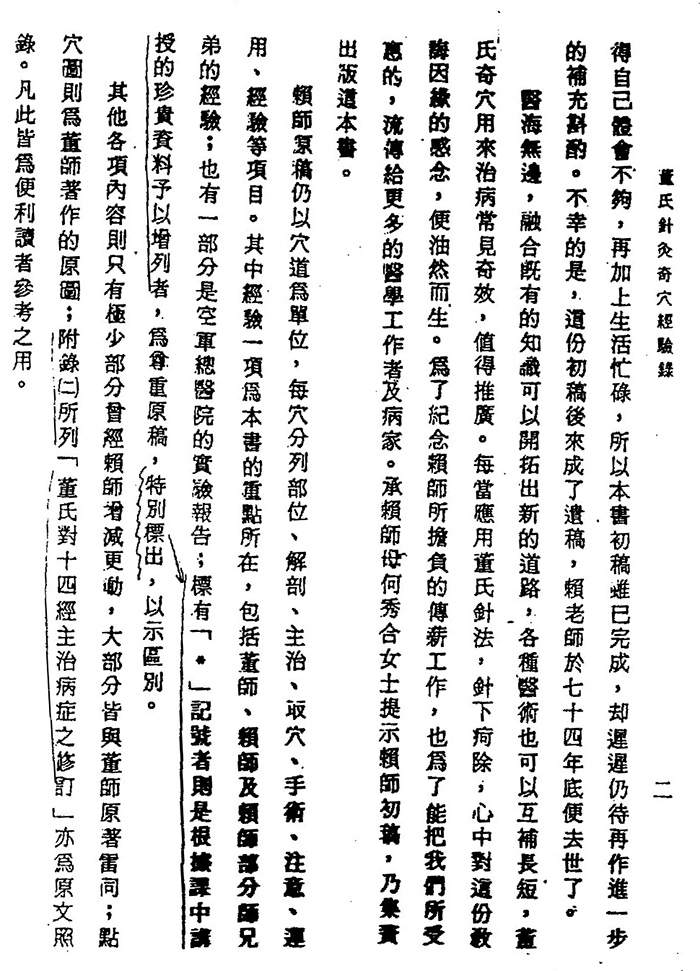 董氏針灸奇穴經驗錄
二
得自己體會不夠，再加上生活忙碌，所以本書初稿雖已完成，却遲遲仍待再作進一步
的補充斟酌。不幸的是，這份初稿後來成了遺稿，賴老師於七十四年底便去世了。
醫海無邊，融合既有的知識可以開拓出新的道路，各種醫術也可以互補長短，董
氏奇穴用來治病常見奇效，值得推廣。每當應用董氏針法，針下疴除，心中對這份教
誨因緣的感念，便油然而生。為了紀念賴師所擔負的傳薪工作，也為了能把我們所受
惠的，流傳給更多的醫學工作者及病家。承賴師母何秀合女士提示賴師初稿，乃集資
出版這本書。
賴師原稿仍以穴道為單位，每穴分列部位、解剖、主治、取穴、手術、注意、運
用、經驗等項目。其中經驗一項為本書的重點所在，包括董師、賴師及賴師部分師兄
弟的經驗；也有一部分是空軍總醫院的實驗報告；標有「*」記號者則是根據課中講
授的珍貴資料予以增列者，為尊重原稿，特別標出，以示區別。
其他各項內容則只有極少部分曾經賴師增減更動，大部分皆與董師原著雷同；點
穴圖則為董師著作的原圖；附錄㈡所列「董氏對十四經主治病症之修訂」亦為原文照
錄。凡此皆為便利讀者參考之用。